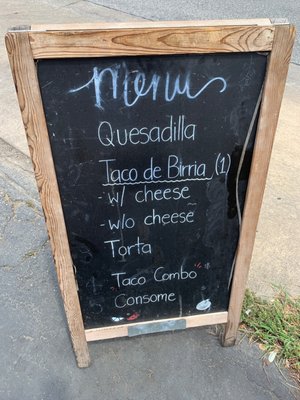 Menu
Quesadilla
Taco de Birria (1)
- w/ cheese
- w/o cheese
Torta
Taco Combo
Consome